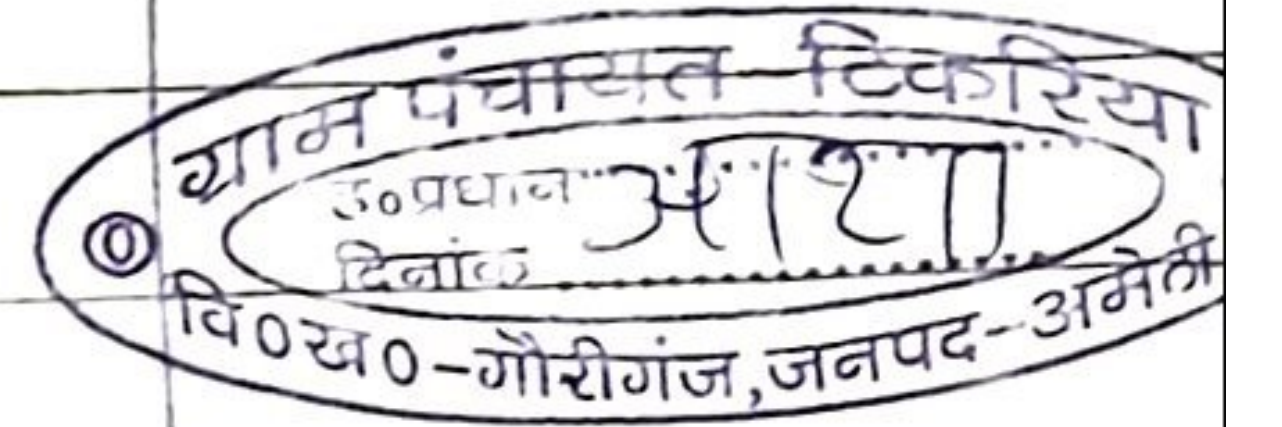 ग्राम पंचायत-टिकरिया
ह०प्रधान
दिनांक
वि०ख०-गौरीगंज,जनपद-अमेठी